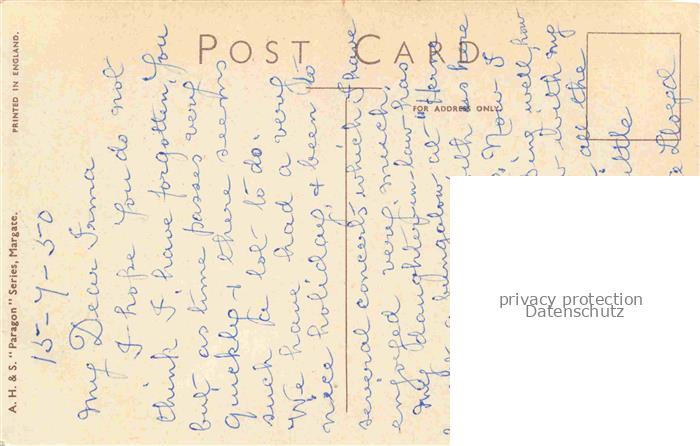 PRINTED IN ENGLAND.
A. H. & S. "Paragon" Series, Margate.
POST CARD
FOR ADDRESS ONLY
15-7-50
My Dear Irma
I hope you do not
think I have forgotten you
but as time passes very
quickly & there seems
such a lot to do.
We have had a very
nice holiday, & been to
several concerts which I have
enjoyed very much.
My daughter-in-law has
a bungalow, at "Herne
with us here
Now I
ing well, how
with my
all the
ittle
Lloyd
privacy protection
Datenschutz